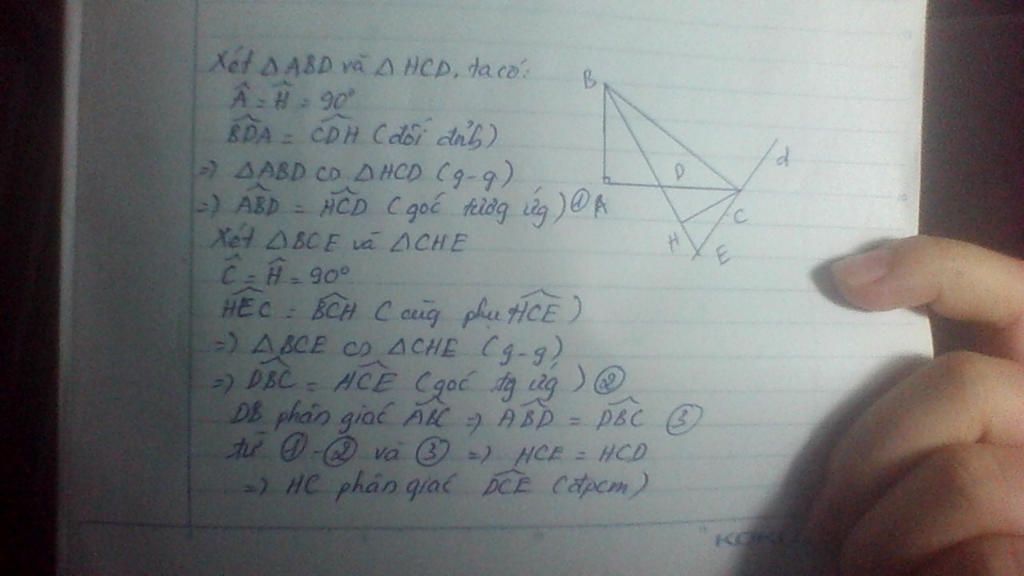 Xét △ABD và △HCD, ta có:
Â = Ĥ = 90°
BDA = CDH (đối đỉnh)
=> △ABD ∽ △HCD (g-g)
=> ABD = HCD (góc tương ứg) ①
Xét △BCE và △CHE
Ĉ = Ĥ = 90°
HEC = BCH (cùng phụ HCE)
=> △BCE ∽ △CHE (g-g)
=> DBC = HCE (góc tg ứg) ②
DB phân giác ABC => ABD = DBC ③
từ ① - ② và ③ => HCE = HCD
=> HC phân giác DCE (đpcm)
B
d
D
A
C
H
E